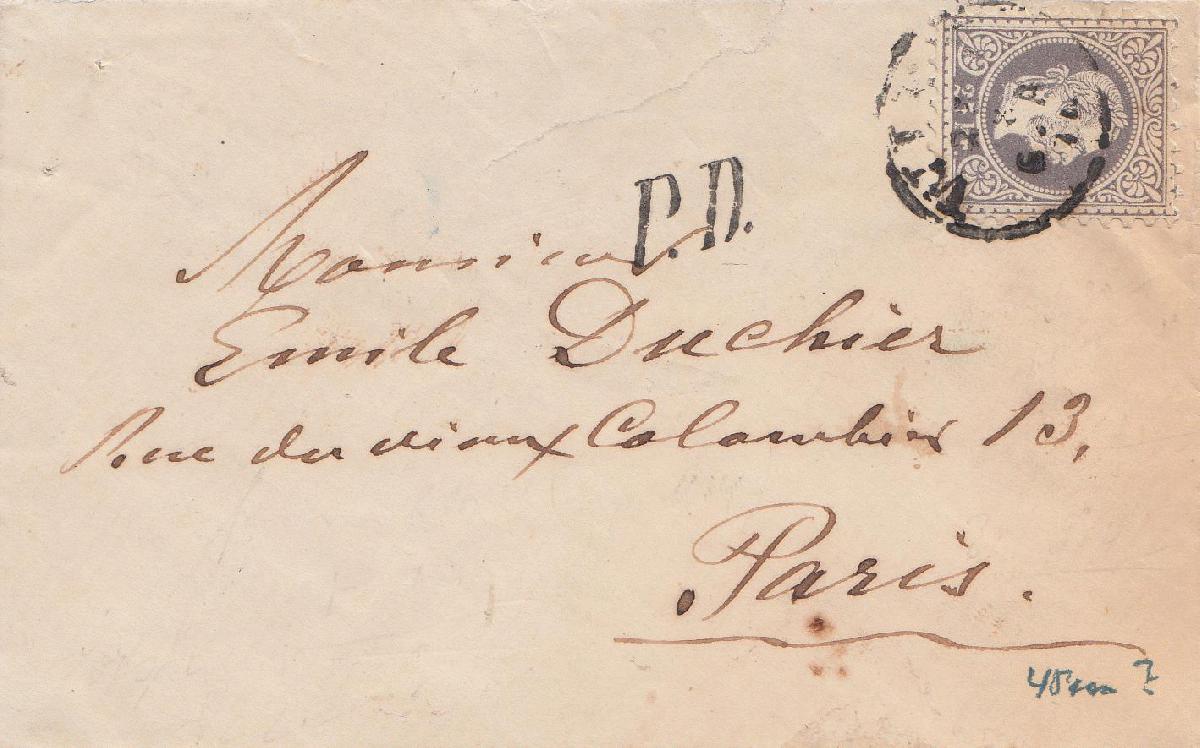 P.D.
Monsieur
Emile Duchier
Rue du vieux Colombier 13,
Paris.